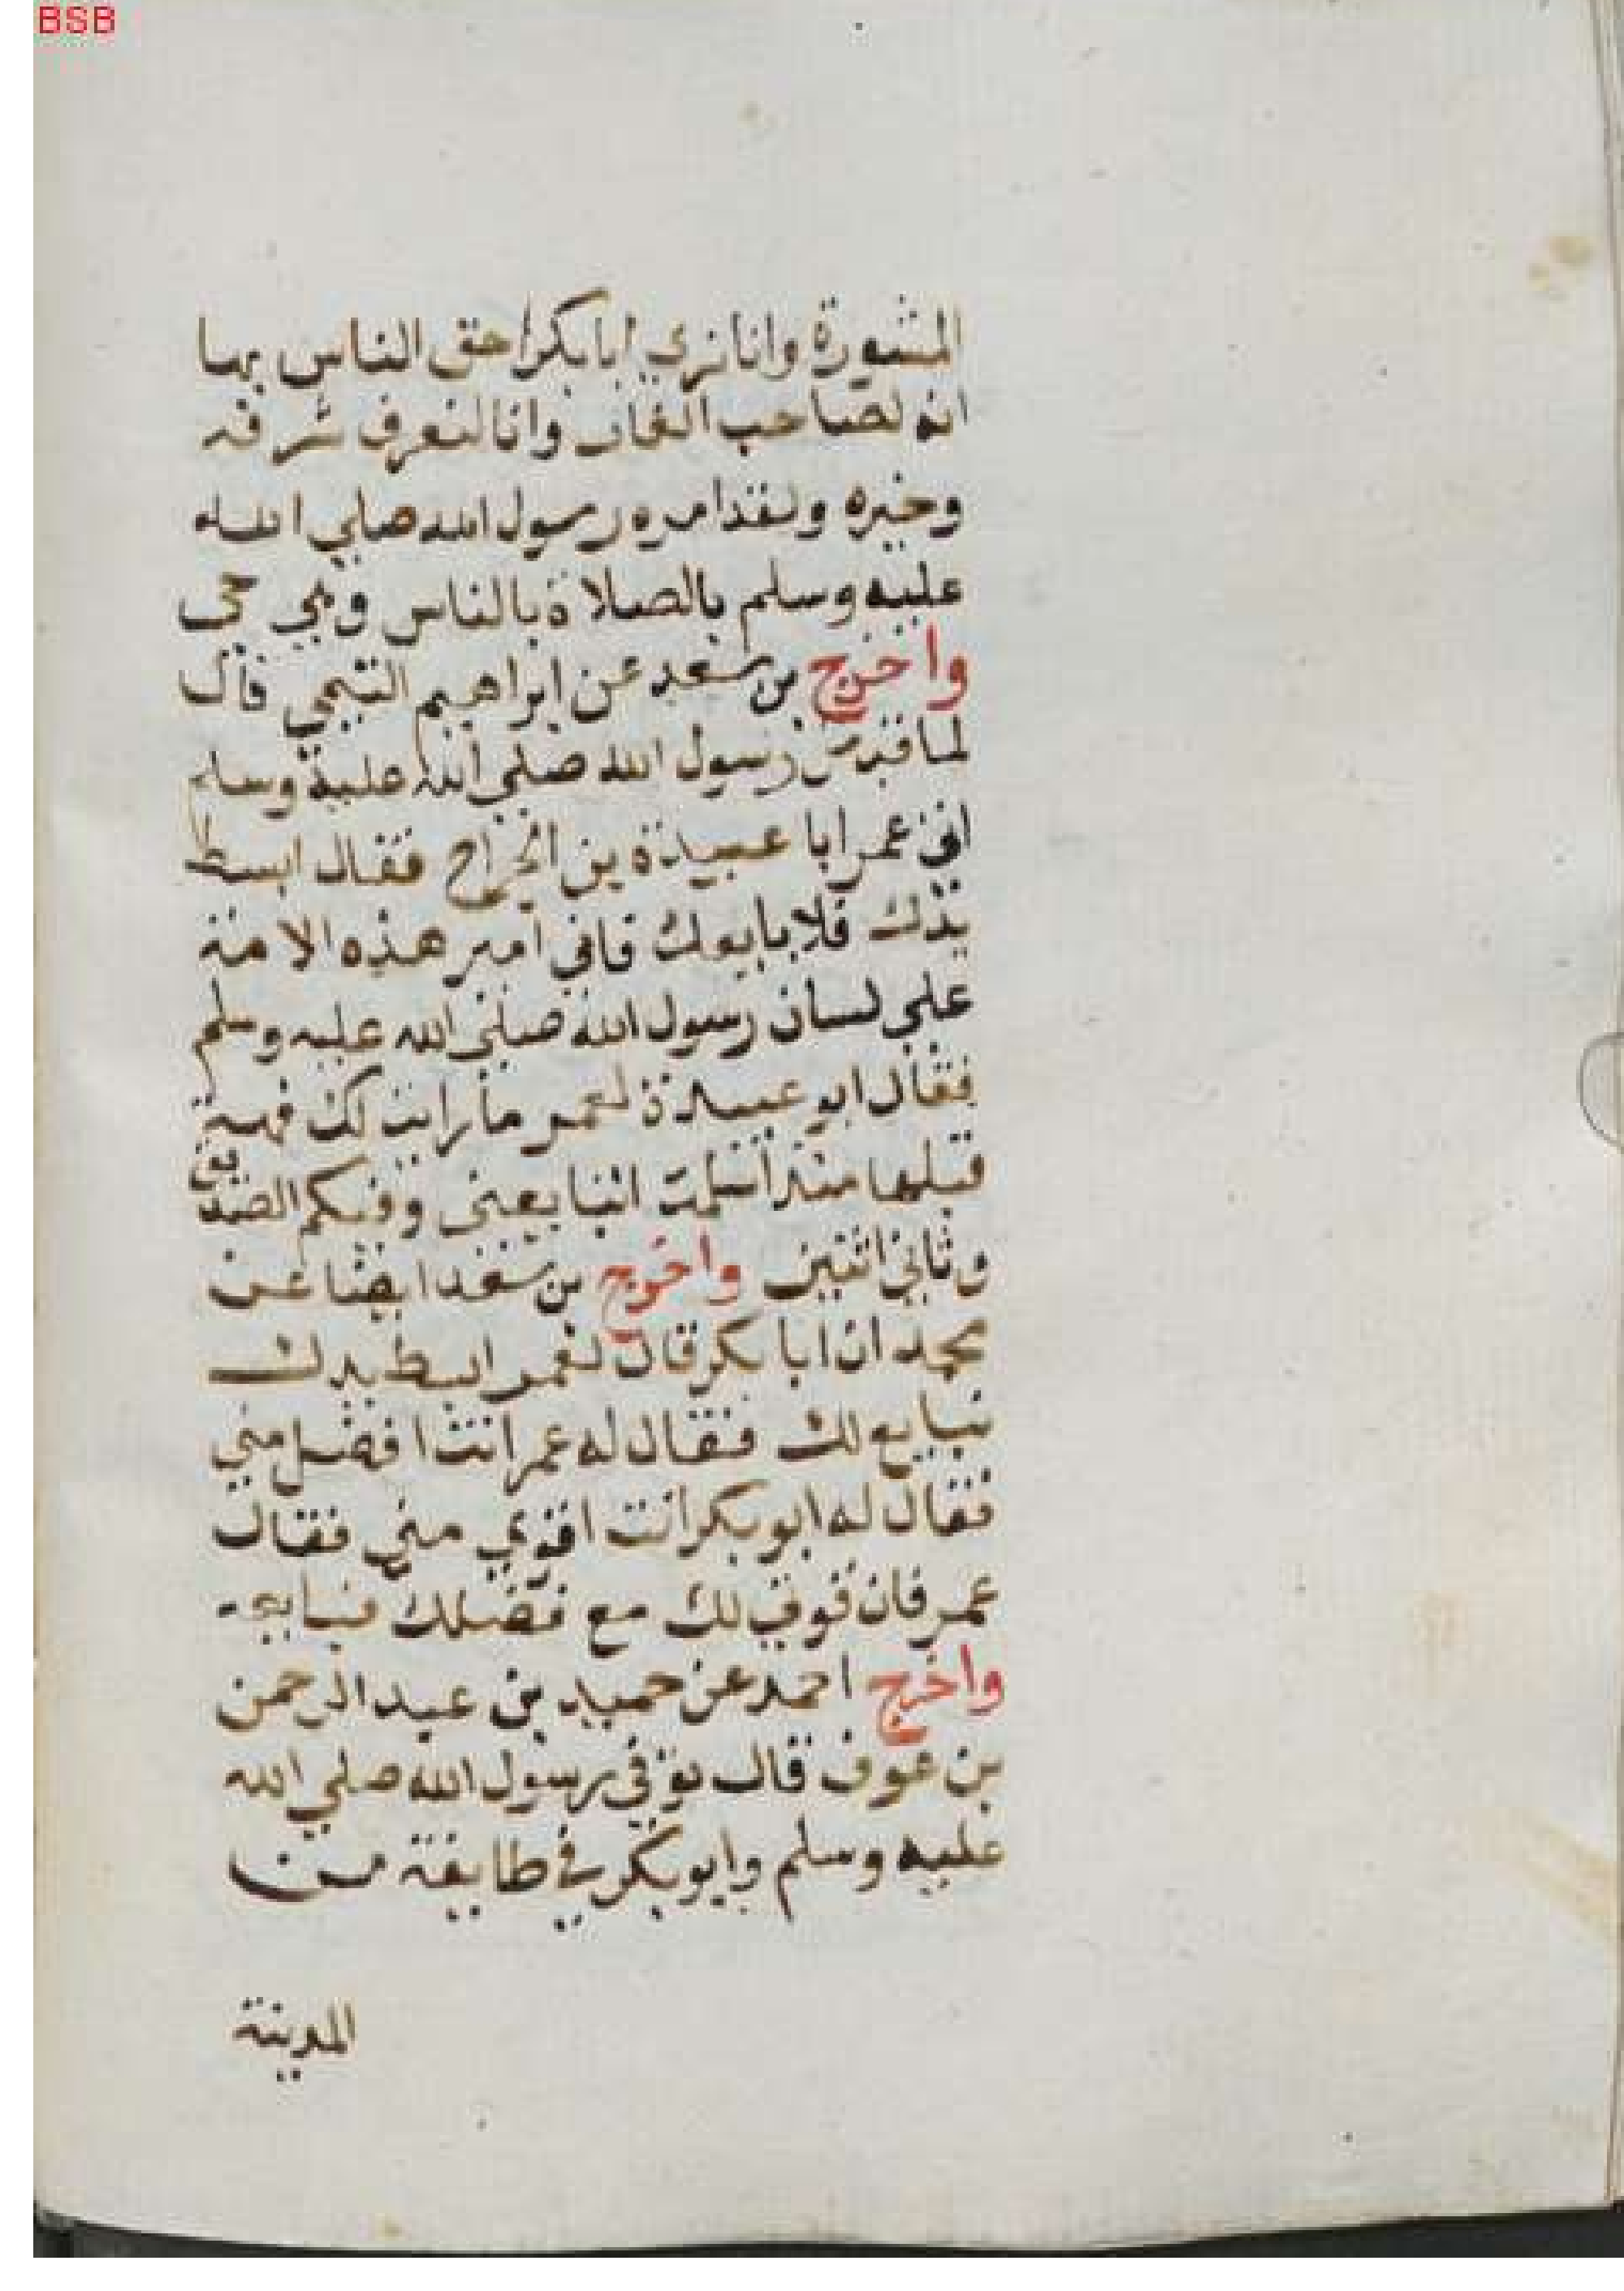 BSB
المشورة وانا نري ابا بكر احق الناس بها
انه لصاحب الغار وانا لنعرف شرفه
وخيره ولقد امره رسول الله صلي الله
عليه وسلم بالصلاة بالناس وهي حي
واخرج بن سعد عن ابراهيم التيمي قال
لما قبض رسول الله صلي الله عليه وسلم
اتي عمر ابا عبيدة بن الجراح فقال ابسط
يدك فلابايعك فاني امير هذه الامة
علي لسان رسول الله صلي الله عليه وسلم
فقال ابو عبيدة لعمر ما رايت لك فهمة
قبلها منذ اسلمت اتبايعني وفيكم الصديق
وثاني اثنين واخرج بن سعد ايضا عن
محمد ان ابا بكر قال لعمر ابسط يدك
نبايع لك فقال له عمر انت افضل مني
فقال له ابو بكر انت اقوي مني فقال
عمر فان قوتي لك مع فضلك فبايعه
واخرج احمد عن حميد بن عبد الرحمن
بن عوف قال توفي رسول الله صلي الله
عليه وسلم وابو بكر في طايفة من
المدينة